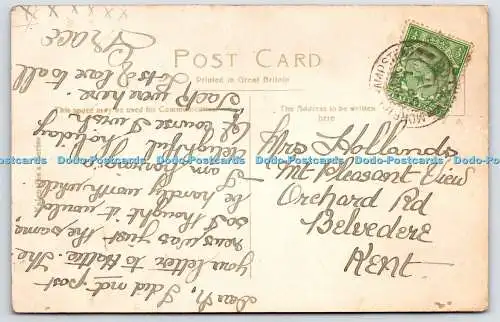 POST CARD
Printed in Great Britain
This space may be used for Communication
The Address to be written
here
Mrs Hollands
Mt Pleasant View
Orchard Rd
Belvedere
Kent.
I did not post
your letter to Hattie. The
news was just the same
so I thought it would
be hardly worth while
I am having a
delightful holiday
Of course I wish
Jack were here.
Lots of love to all
Grace
x x x x
Dodo-Postcards Dodo-Postcards Dodo-Postcards Dodo-Postcards